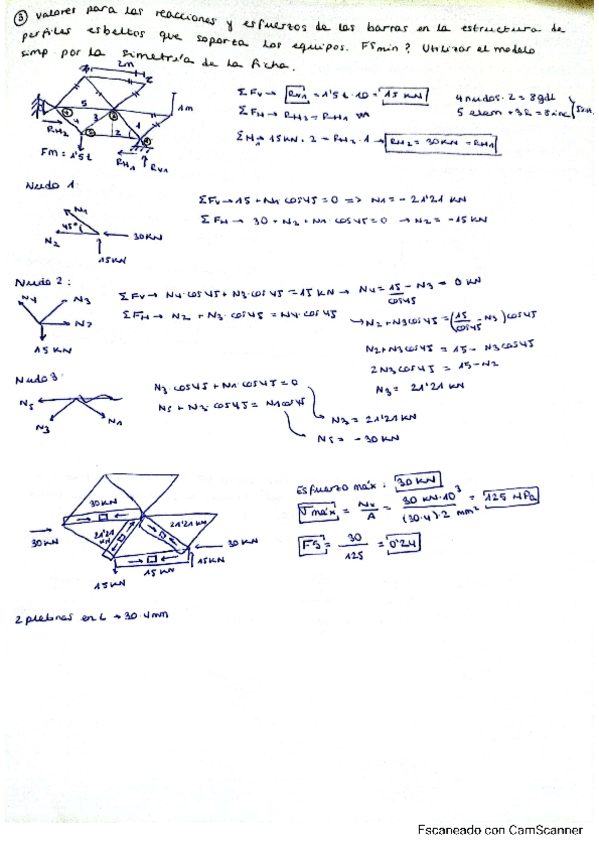 ③ valores para las reacciones y esfuerzos de las barras en la estructura de
perfiles esbeltos que soporta los equipos. FSmin? Utilizar el modelo
simp por la simetría de la ficha.
2m
1m
5
4
3
2
1
RH2
Fm = 1'5t
RH1
RV1
ΣFv → RV1 = 1'5t·10 = 15 KN
ΣFH → RH2 = RH1
ΣM1 → 15KN·2 = RH2·1 → RH2 = 30KN = RH1
4 nudos·2 = 8gdl
Nudo 1:
N1
45°
N2
30KN
15KN
ΣFv → 15 + N1 cos45 = 0 => N1 = -21'21 KN
ΣFH → 30 + N2 + N1·cos45 = 0 → N2 = -15 KN
Nudo 2:
N4
N3
N2
15 KN
ΣFv → N4·cos45 + N3·cos45 = 15 KN → N4 = 15/cos45 - N3 = 0 KN
ΣFH → N2 + N3·cos45 = N4·cos45
→ N2 + N3cos45 = (15/cos45 - N3) cos45
N2 + N3cos45 = 15 - N3cos45
2N3cos45 = 15 - N2
N3 = 21'21 KN
Nudo 3
N5
N3
N1
N3·cos45 + N1·cos45 = 0
N5 + N3·cos45 = N1cos45
N3 = 21'21 KN
N5 = -30KN
30KN
30KN
21'21 KN
21'21 KN
30 KN
15 KN
15KN
15KN
Esfuerzo máx: 30 KN
σmáx = Nx/A = 30 KN·10³/(30·4)·2 mm² = 125 MPa
FS = 30/125 = 0'24
2 pletinas en L → 30·4mm
Escaneado con CamScanner